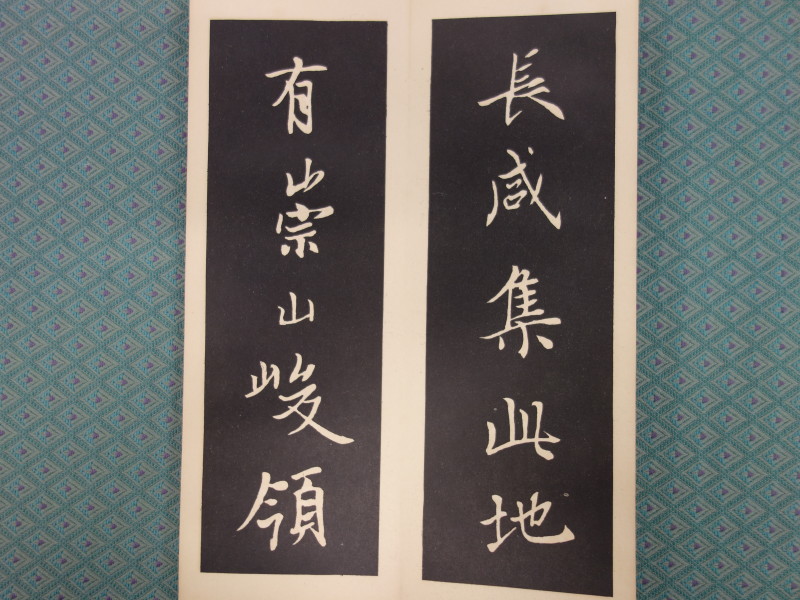 長咸集此地
有崇山峻領